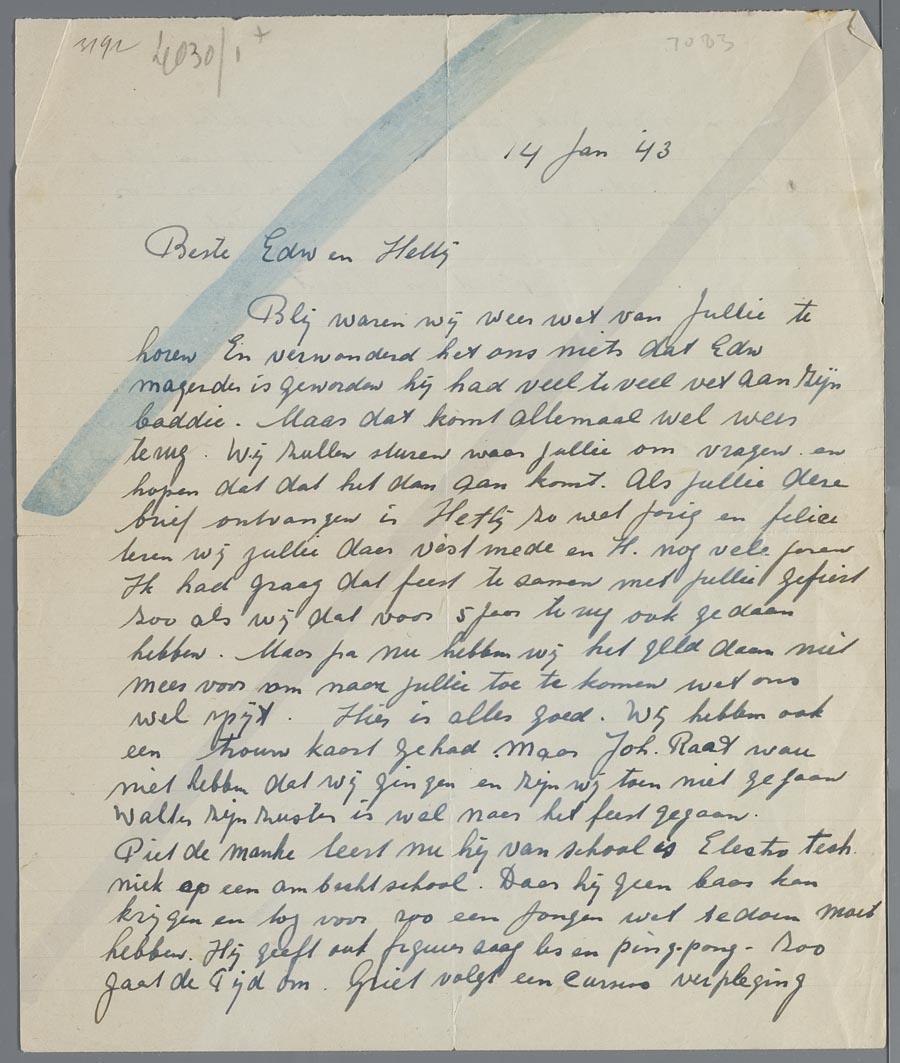 3192 4030/1+ 7083
14 Jan '43
Beste Edw en Hetty
Blij waren wij weer wat van Jullie te
horen En verwonderd het ons niets dat Edw
magerder is geworden hij had veel te veel vet aan zijn
baddie. Maar dat komt allemaal wel weer
terug. Wij zullen sturen waar jullie om vragen. en
hopen dat dat het dan aan komt. Als jullie deze
brief ontvangen is Hetty zo wat jarig en felici
teren wij jullie daar vast mede en H. nog vele jaren
Ik had graag dat feest te samen met jullie gefiert
zoo als wij dat voor 5 jaar terug ook gedaan
hebben. Maar ja nu hebben wij het geld daam niet
meer voor om naar jullie toe te komen wat ons
wel spijt. Hier is alles goed. Wij hebben ook
een trouw kaart gehad. Maar Joh. Raat wou
niet hebben dat wij gingen en zijn wij toen niet gegaan
Walter zijn zuster is wel naar het feest gegaan.
Piet de manke leert nu hij van school is Electro tech.
niek op een ambachtschool. Daar hij geen baas kan
krijgen en tog voor zoo een jongen wat te doen moet
hebben. Hij geeft ook figuurzaag les en ping-pong - zoo
gaat de Tijd om. Griet volgt een cursus verpleging